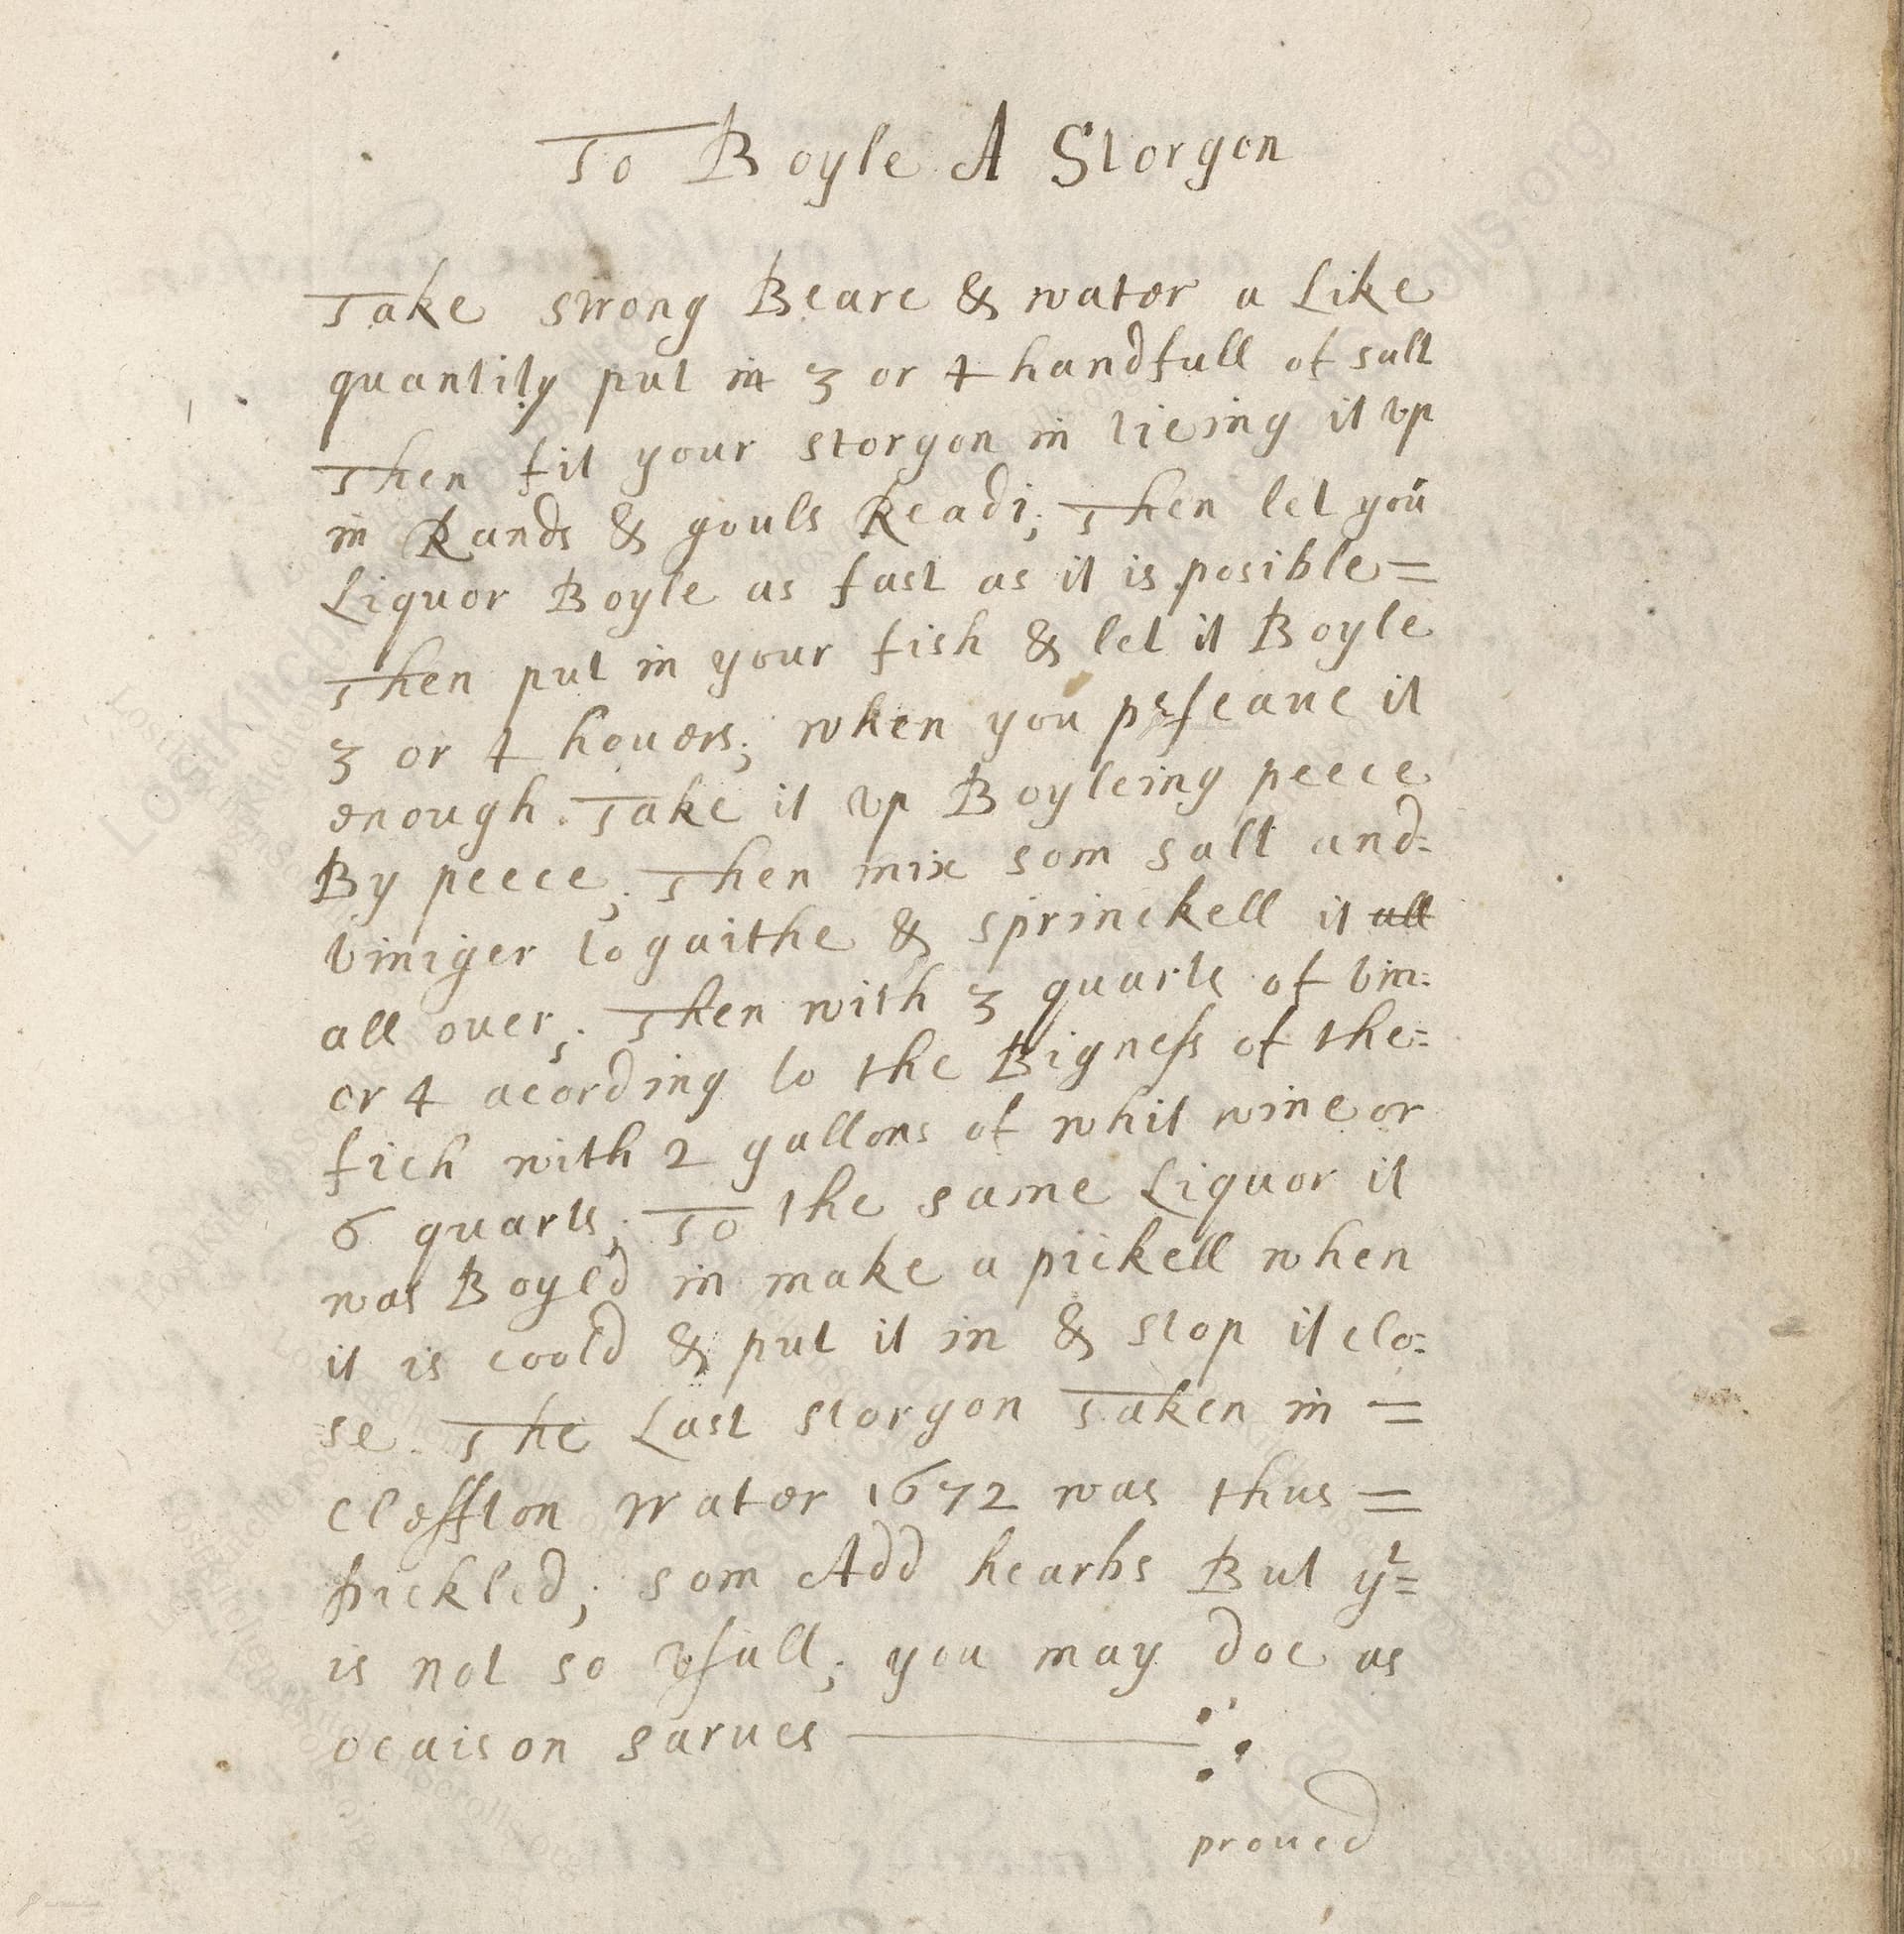 To Boyle A Storgon
Take strong Beare & water a Like
quantity put in 3 or 4 handfull of salt
Then fit your storgon in tieing it vp
in Rands & gouls Readi; Then let you
Liquor Boyle as fast as it is posible=
Then put in your fish & let it Boyle
3 or 4 houers; when you perseaue it
enough. Take it vp Boyleing peece
By peece; Then mix som salt and:
viniger togaithe & sprinckell it all
all ouer; Then with 3 quarts of vin:
or 4 acording to the Bigness of the=
fich with 2 gallons of whit wine or
6 quarts; To the same Liquor it
was Boyled in make a pickell when
it is coold & put it in & stop it clo:
se. The Last storgon Taken in =
Cleffton water 1672 was thus =
pickled; som Add hearbs But yt=
is not so vsull; you may doe as
ocaison sarues
proued